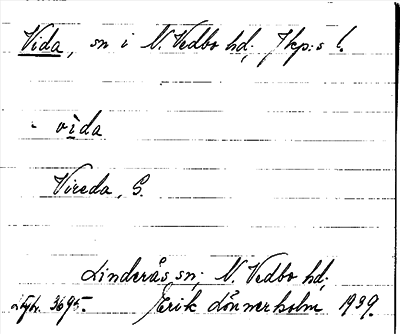 Vida, sn i N. Vedbo hd; Jkp:s l.
- vìda
Vireda, S.
Linderås sn; N. Vedbo hd;
Erik Lönnerholm 1939.